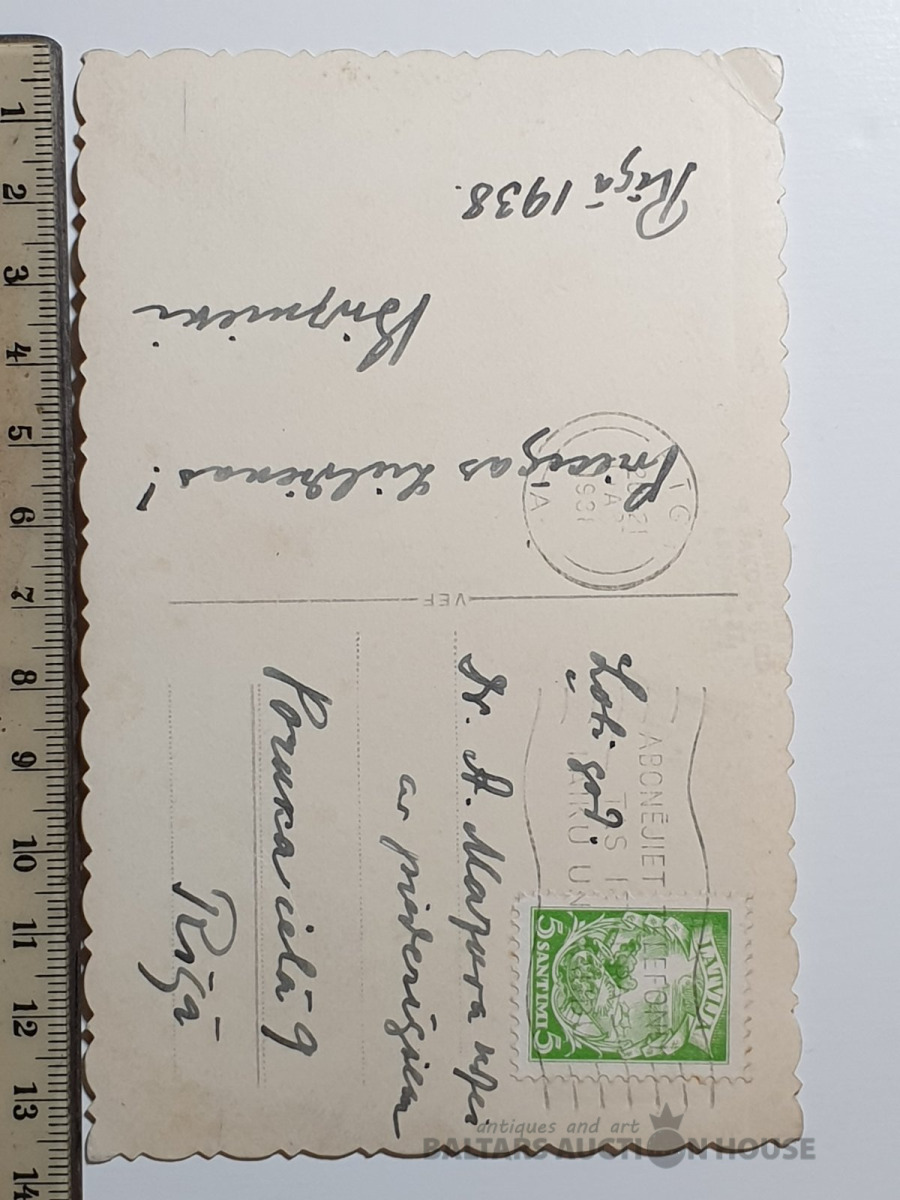 Priecīgas Lieldienas!
Brizmieki
Rīgā 1938.
VEF
Ļoti god.
Dr. A. Mazora kgei
ar piederīgiem
Poruka ielā 9
Rīgā
ABONĒJIET TELEFONU
LATVIJA
5 SANTIMI 5
1
2
3
4
5
6
7
8
9
10
11
12
13
14
antiques and art
BALTARS AUCTION HOUSE